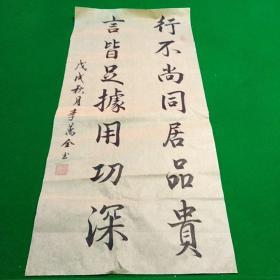 行不尚同居品貴
言皆足據用功深
戊戌秋月李萬全书